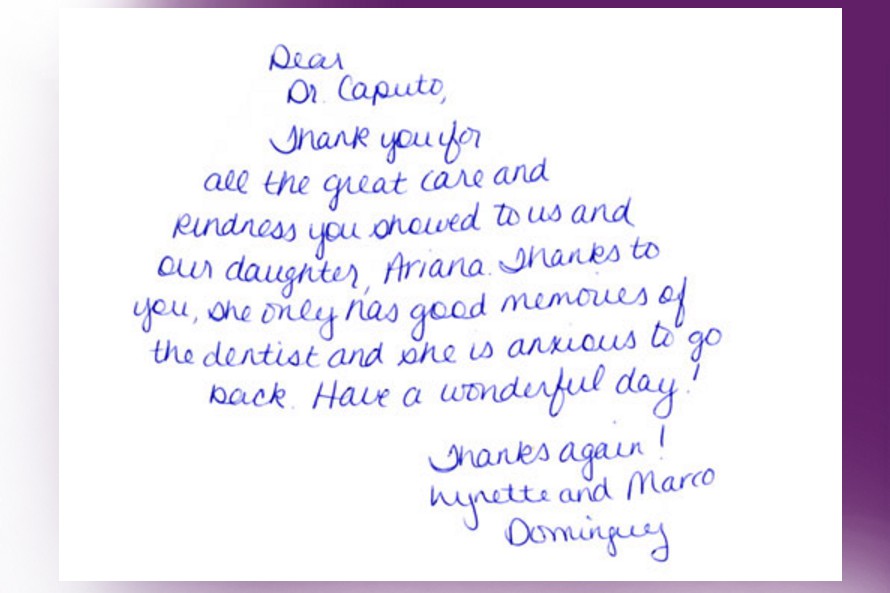 Dear
Dr. Caputo,
Thank you for
all the great care and
kindness you showed to us and
our daughter, Ariana. Thanks to
you, she only has good memories of
the dentist and she is anxious to go
back. Have a wonderful day!
Thanks again!
Lynette and Marco
Dominguez